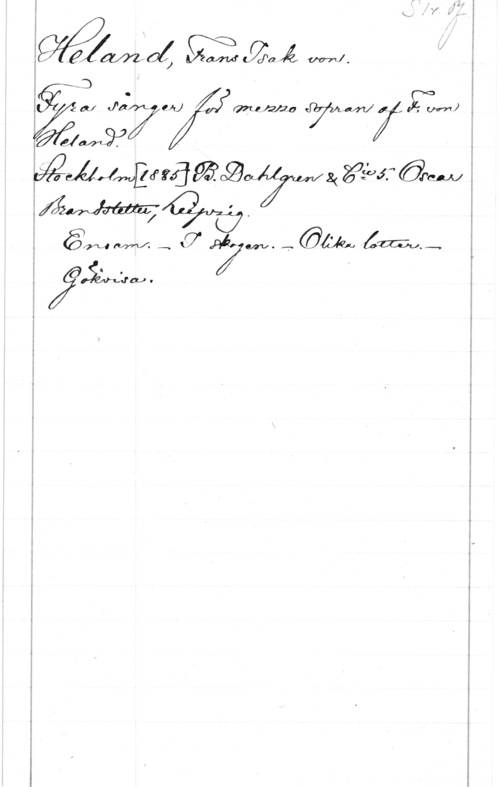 Heland, Frans Isak von.
Fyra sånger för mezzo sopran af F. von
Heland.
Stockholm [1885] B. Dahlgren & C:is. Oscar
Brandstetter, Leipzig.
Ensam. – I skogen. – Olika lotter. –
Gökvisa.